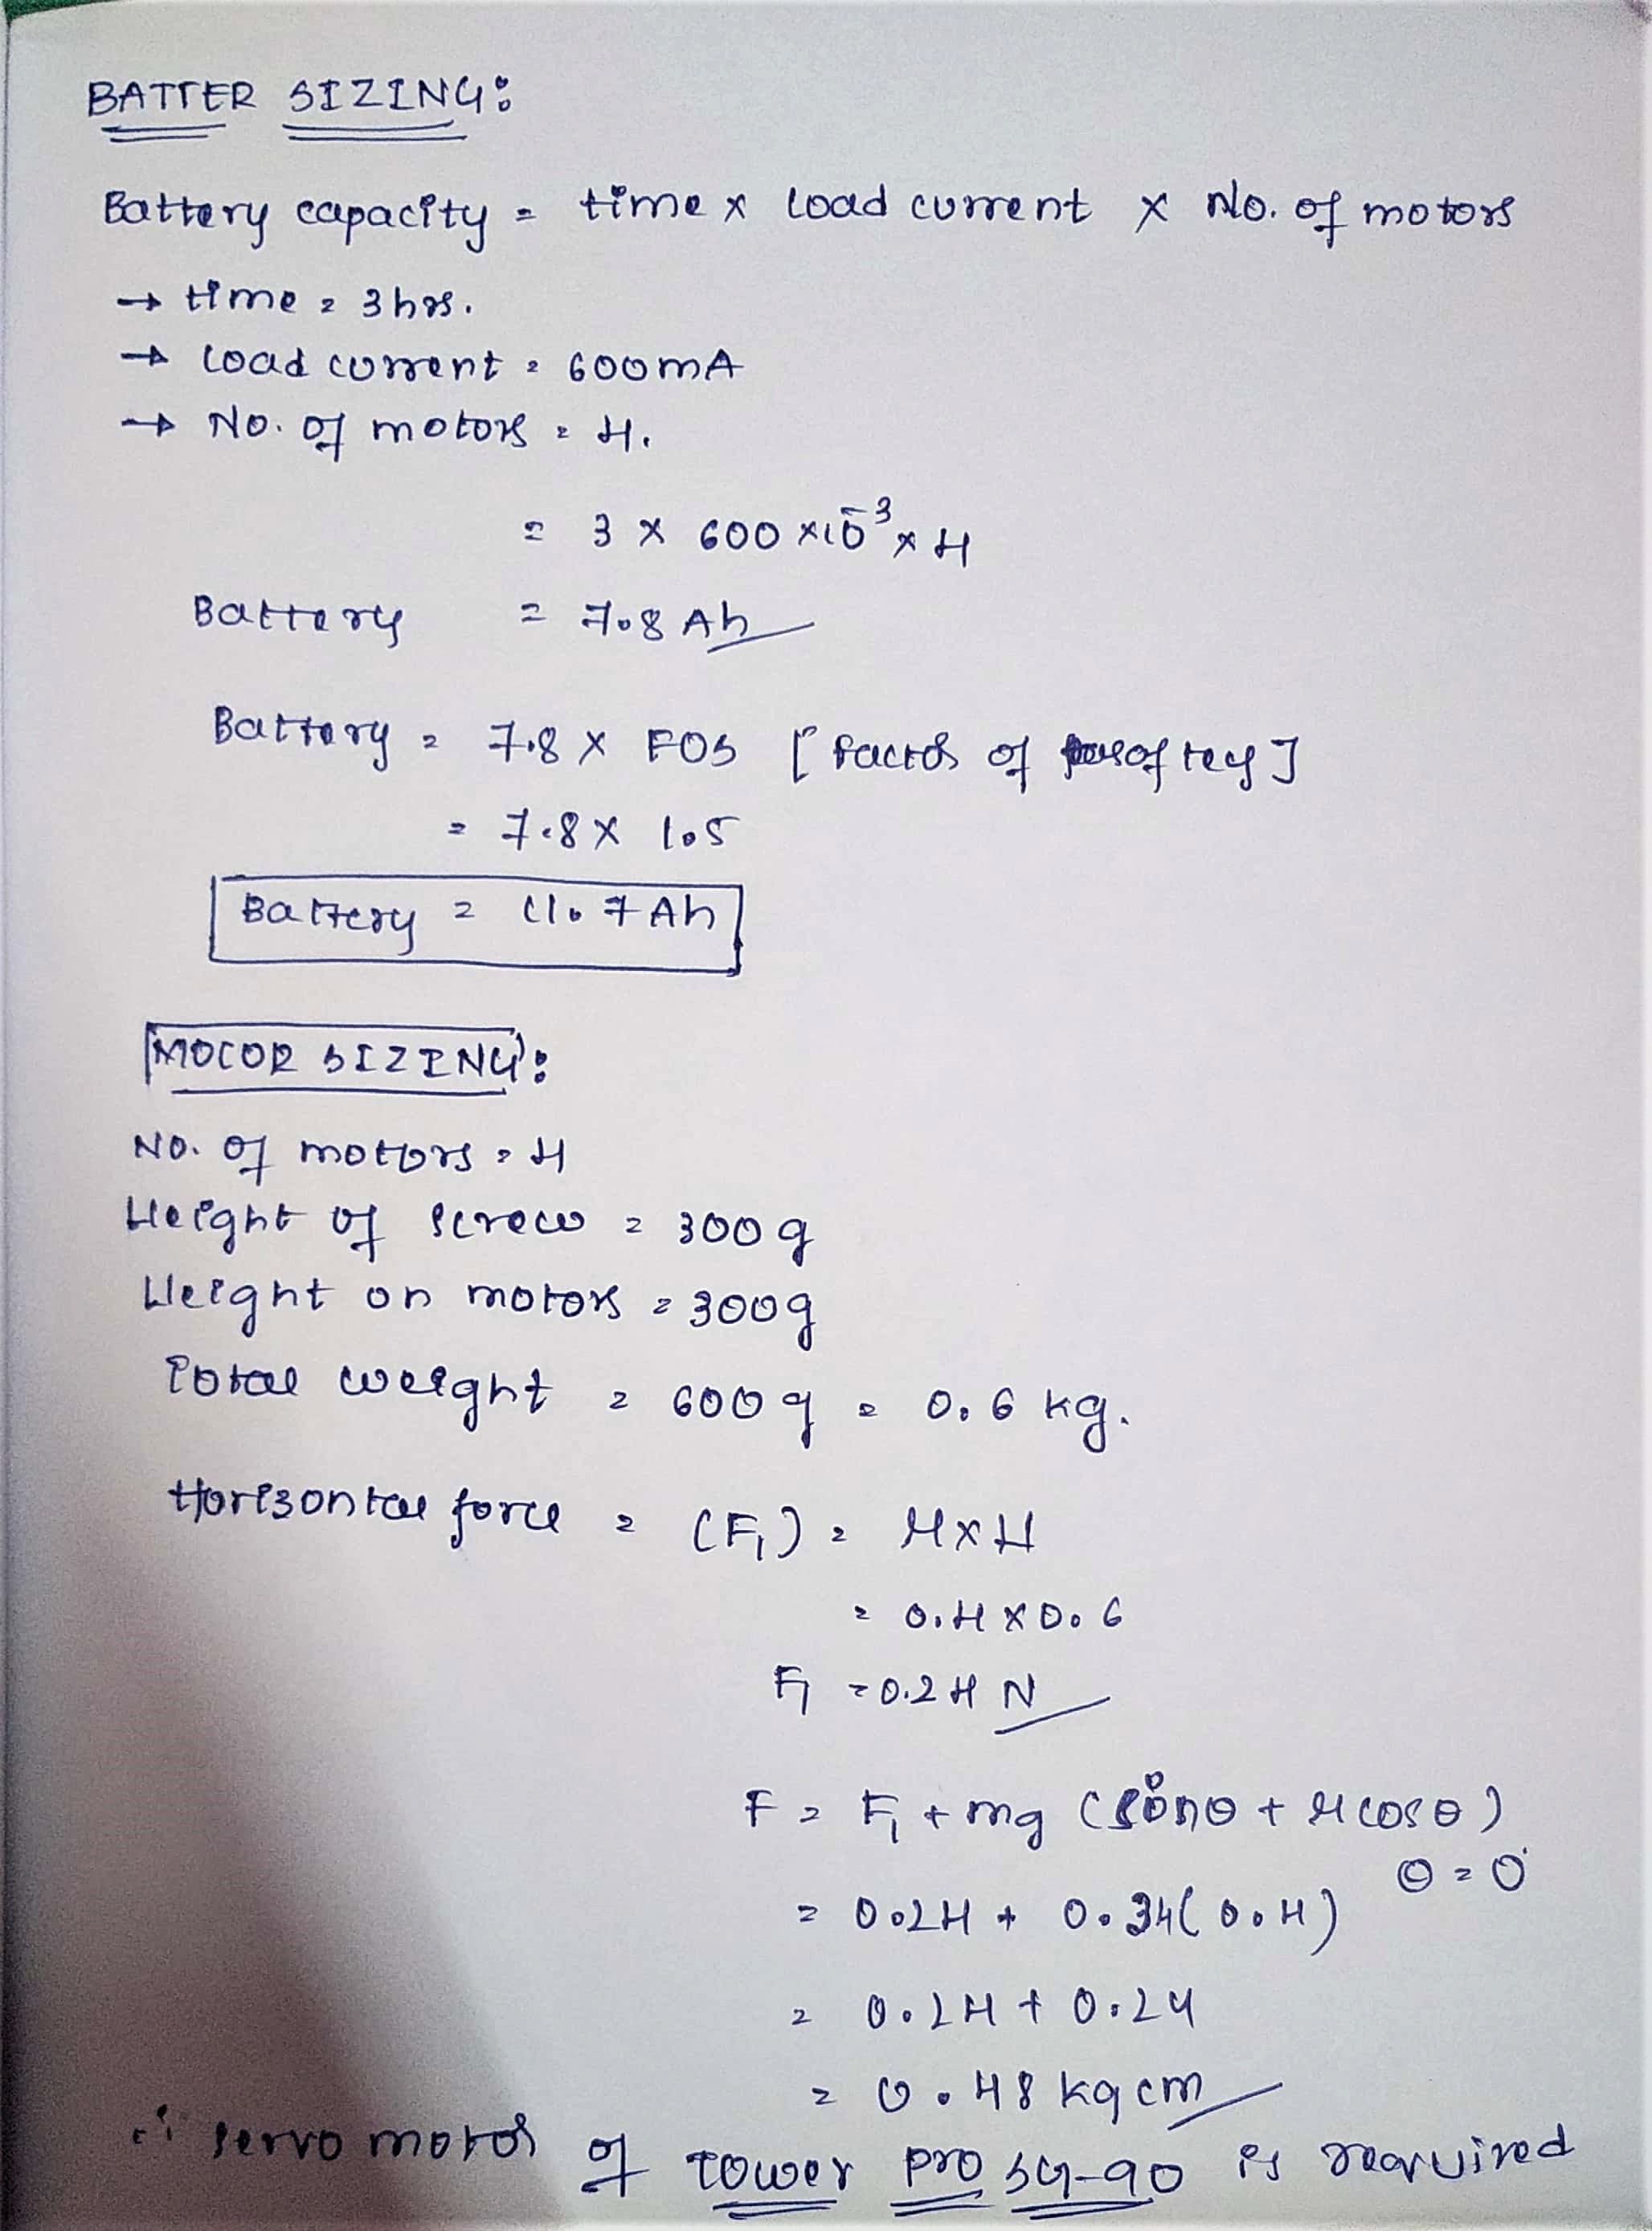 BATTER SIZING:
Battery capacity = time x load current x No. of motors
→ time = 3 hrs.
→ load current = 600mA
→ No. of motors = 4.
= 3 x 600 x10⁻³ x 4
Battery = 7.8 Ah
Battery = 7.8 x FOS [factor of
= 7.8 x 1.5
Battery = 11.7 Ah
MOTOR SIZING:
No. of motors = 4
Weight of screw = 300 g
Weight on motors = 300g
Total weight = 600 g = 0.6 kg.
Horizontal force = (F₁) = μ x W
= 0.4 x 0.6
F₁ = 0.24 N
F = F₁ + mg (sinθ + μ cosθ)
θ = 0°
= 0.24 + 0.34(0.4)
= 0.24 + 0.24
= 0.48 kg cm
∴ servo motor of Tower pro SG-90 is required